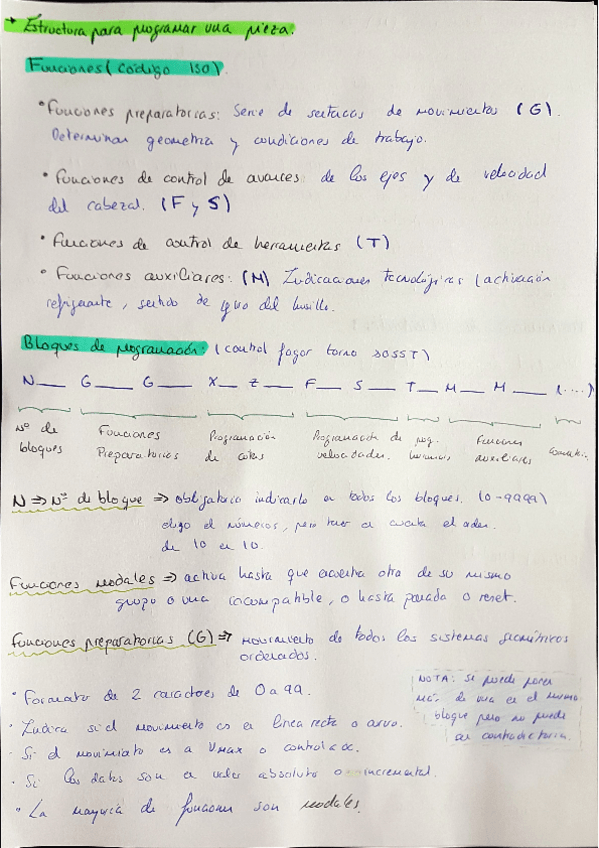 → Estructura para programar una pieza.
Funciones (código ISO).
• Funciones preparatorias: Serie de de movimientos (G).
Determinan geometría y condiciones de trabajo.
• Funciones de control de avances: de los ejes y de velocidad
del cabezal. (F y S)
• Funciones de control de herramientas (T)
• Funciones auxiliares: (M) Indicaciones tecnológicas (activación
refrigerante, sentido de giro del husillo.
Bloques de programación: (control fagor torno 8055T)
N__ G___ G___ X__ Z__ F__ S__ T__ M__ M___ (....)
Nº de Funciones Programación Programación de prog. Funciones
bloques Preparatorias de cotas velocidades. auxiliares
N ⇒ Nº de bloque ⇒ obligatorio indicarlo en todos los bloques. (0-9999)
eligo el números, pero tener en cuenta el orden.
de 10 en 10.
Funciones modales ⇒ activa hasta que encuentra otra de su mismo
grupo o una incompatible, o hasta parada o reset.
Funciones preparatorias (G) ⇒ movimiento de todos los sistemas geométricos
ordenados.
NOTA: se puede poner
más de una en el mismo
bloque pero no puede
ser contradictoria.
• Formato de 2 caracteres de 0 a 99.
• Indica si el movimiento es en línea recta o arco.
• Si el movimiento es a Vmax o
• Si los datos son en valor absoluto o incremental.
• La mayoría de funciones son modales.